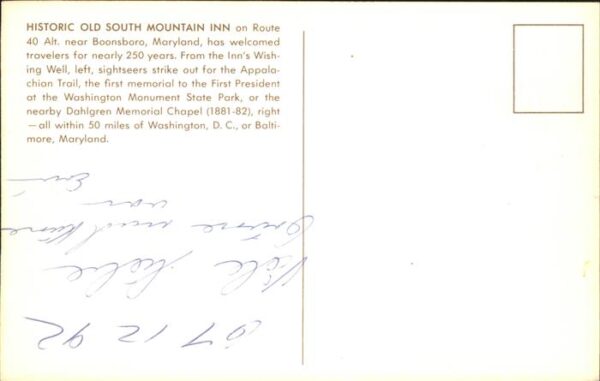 HISTORIC OLD SOUTH MOUNTAIN INN on Route
40 Alt. near Boonsboro, Maryland, has welcomed
travelers for nearly 250 years. From the Inn's Wish-
ing Well, left, sightseers strike out for the Appala-
chian Trail, the first memorial to the First President
at the Washington Monument State Park, or the
nearby Dahlgren Memorial Chapel (1881-82), right
—all within 50 miles of Washington, D. C., or Balti-
more, Maryland.
Viele liebe
und
von